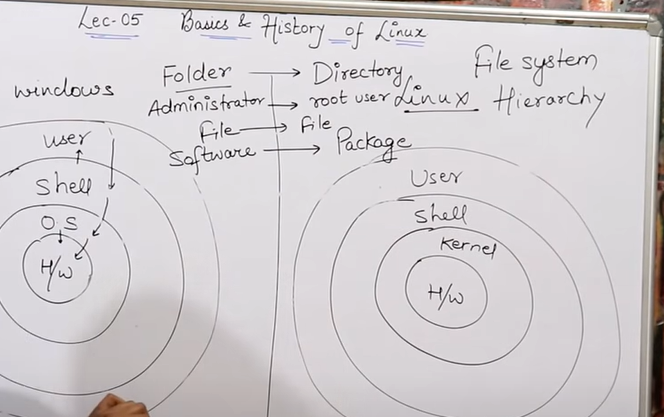 Lec-05 Basics & History of Linux
windows
Folder → Directory
Administrator → root user
File → File
Software → Package
Linux
File system
Hierarchy
user
Shell
O.S
H/W
User
Shell
Kernel
H/W